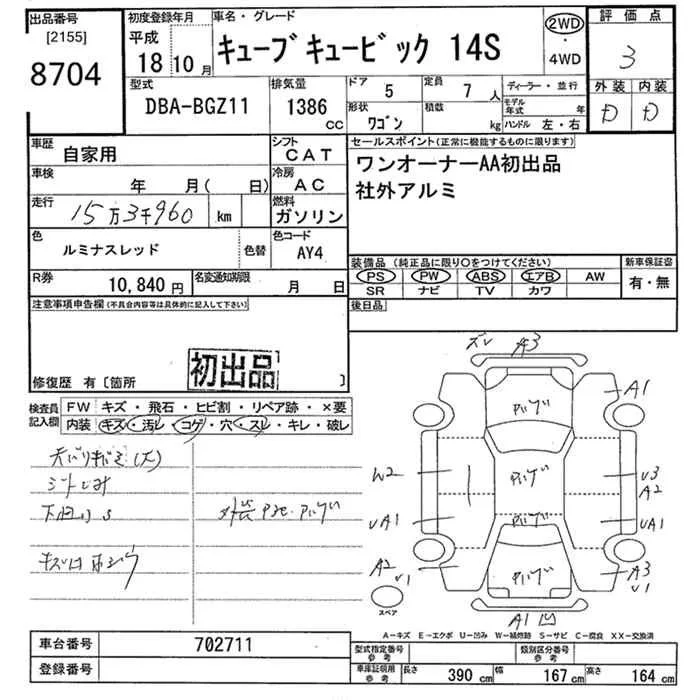 出品番号
[2155]
8704
初度登録年月
平成
18 10 月
車名・グレード
キューブキュービック 14S
2WD
・
4WD
評価点
3
型式
DBA-BGZ11
排気量
1386 CC
ドア 5
定員 7 人
形状 ワゴン
積載 kg
ディーラー・並行
モデル年式 年
ハンドル 左・右
外装 内装
D D
車歴 自家用
シフト CAT
車検 年 月( 日)
冷房 AC
走行 15万3千960 km
燃料 ガソリン
色 ルミナスレッド 色替
色コード AY4
R券 10,840 円
名変通知期限 月 日
セールスポイント(正常に機能するものに限ります)
ワンオーナーAA初出品
社外アルミ
装備品(純正品に限り○をつけてください)
PS PW ABS エアB AW
SR ナビ TV カワ
新車保証書
有・無
後日品
注意事項申告欄(不具合内容等は具体的に記入して下さい)
初出品
修復歴 有〔箇所 〕
検査員記入欄
FW キズ・飛石・ヒビ割・リペア跡・×要
内装 キズ・汚レ・コゲ・穴・スレ・キレ・破レ
A3
A1
W2
U3
A2
UA1
UA1
A2
U1
A3
U1
A1 凹
スペア
A-キズ E-エクボ U-凹み W-補修跡 S-サビ C-腐食 XX-交換済
車台番号 702711
登録番号
型式指定番号 参考
類別区分番号 参考
車庫証明用 参考
長さ 390 cm 幅 167 cm 高さ 164 cm